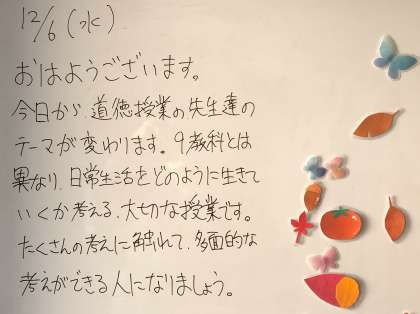 12/6(水)
おはようございます。
今日から、道徳授業の先生達の
テーマが変わります。9教科とは
異なり、日常生活をどのように生きて
いくか考える、大切な授業です。
たくさんの考えに触れて、多面的な
考えができる人になりましょう。